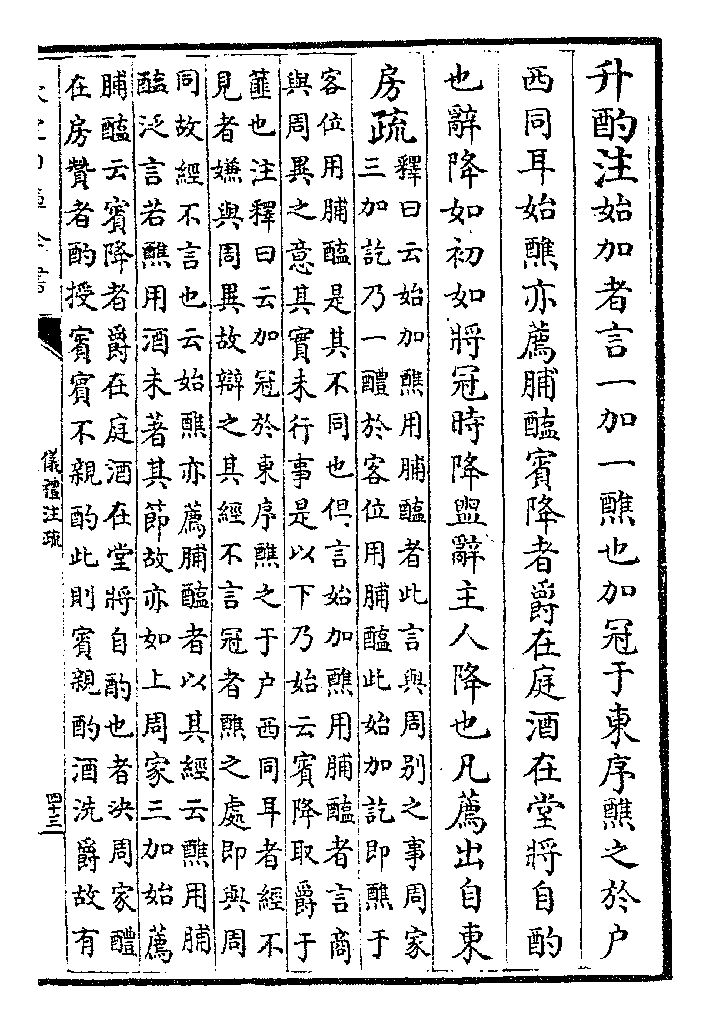 升酌注始加者言一加一醮也加冠于東序醮之於户
西同耳始醮亦薦脯醢賓降者爵在庭酒在堂將自酌
也辭降如初如將冠時降盥辭主人降也凡薦出自東
房疏
釋曰云始加醮用脯醢者此言與周别之事周家
三加訖乃一醴於客位用脯醢此始加訖即醮于
客位用脯醢是其不同也但言始加醮用脯醢者言商
與周異之意其實未行事是以下乃始云賓降取爵于
篚也注釋曰云加冠於東序醮之于户西同耳者經不
見者嫌與周異故辯之其經不言冠者醮之處即與周
同故經不言也云始醮亦薦脯醢者以其經云醮用脯
醢泛言若醮用酒未著其節故亦如上周家三加始薦
脯醢云賓降者爵在庭酒在堂將自酌也者決周家醴
在房贊者酌授賓賓不親酌此則賓親酌酒洗爵故有
儀禮注疏
四十三